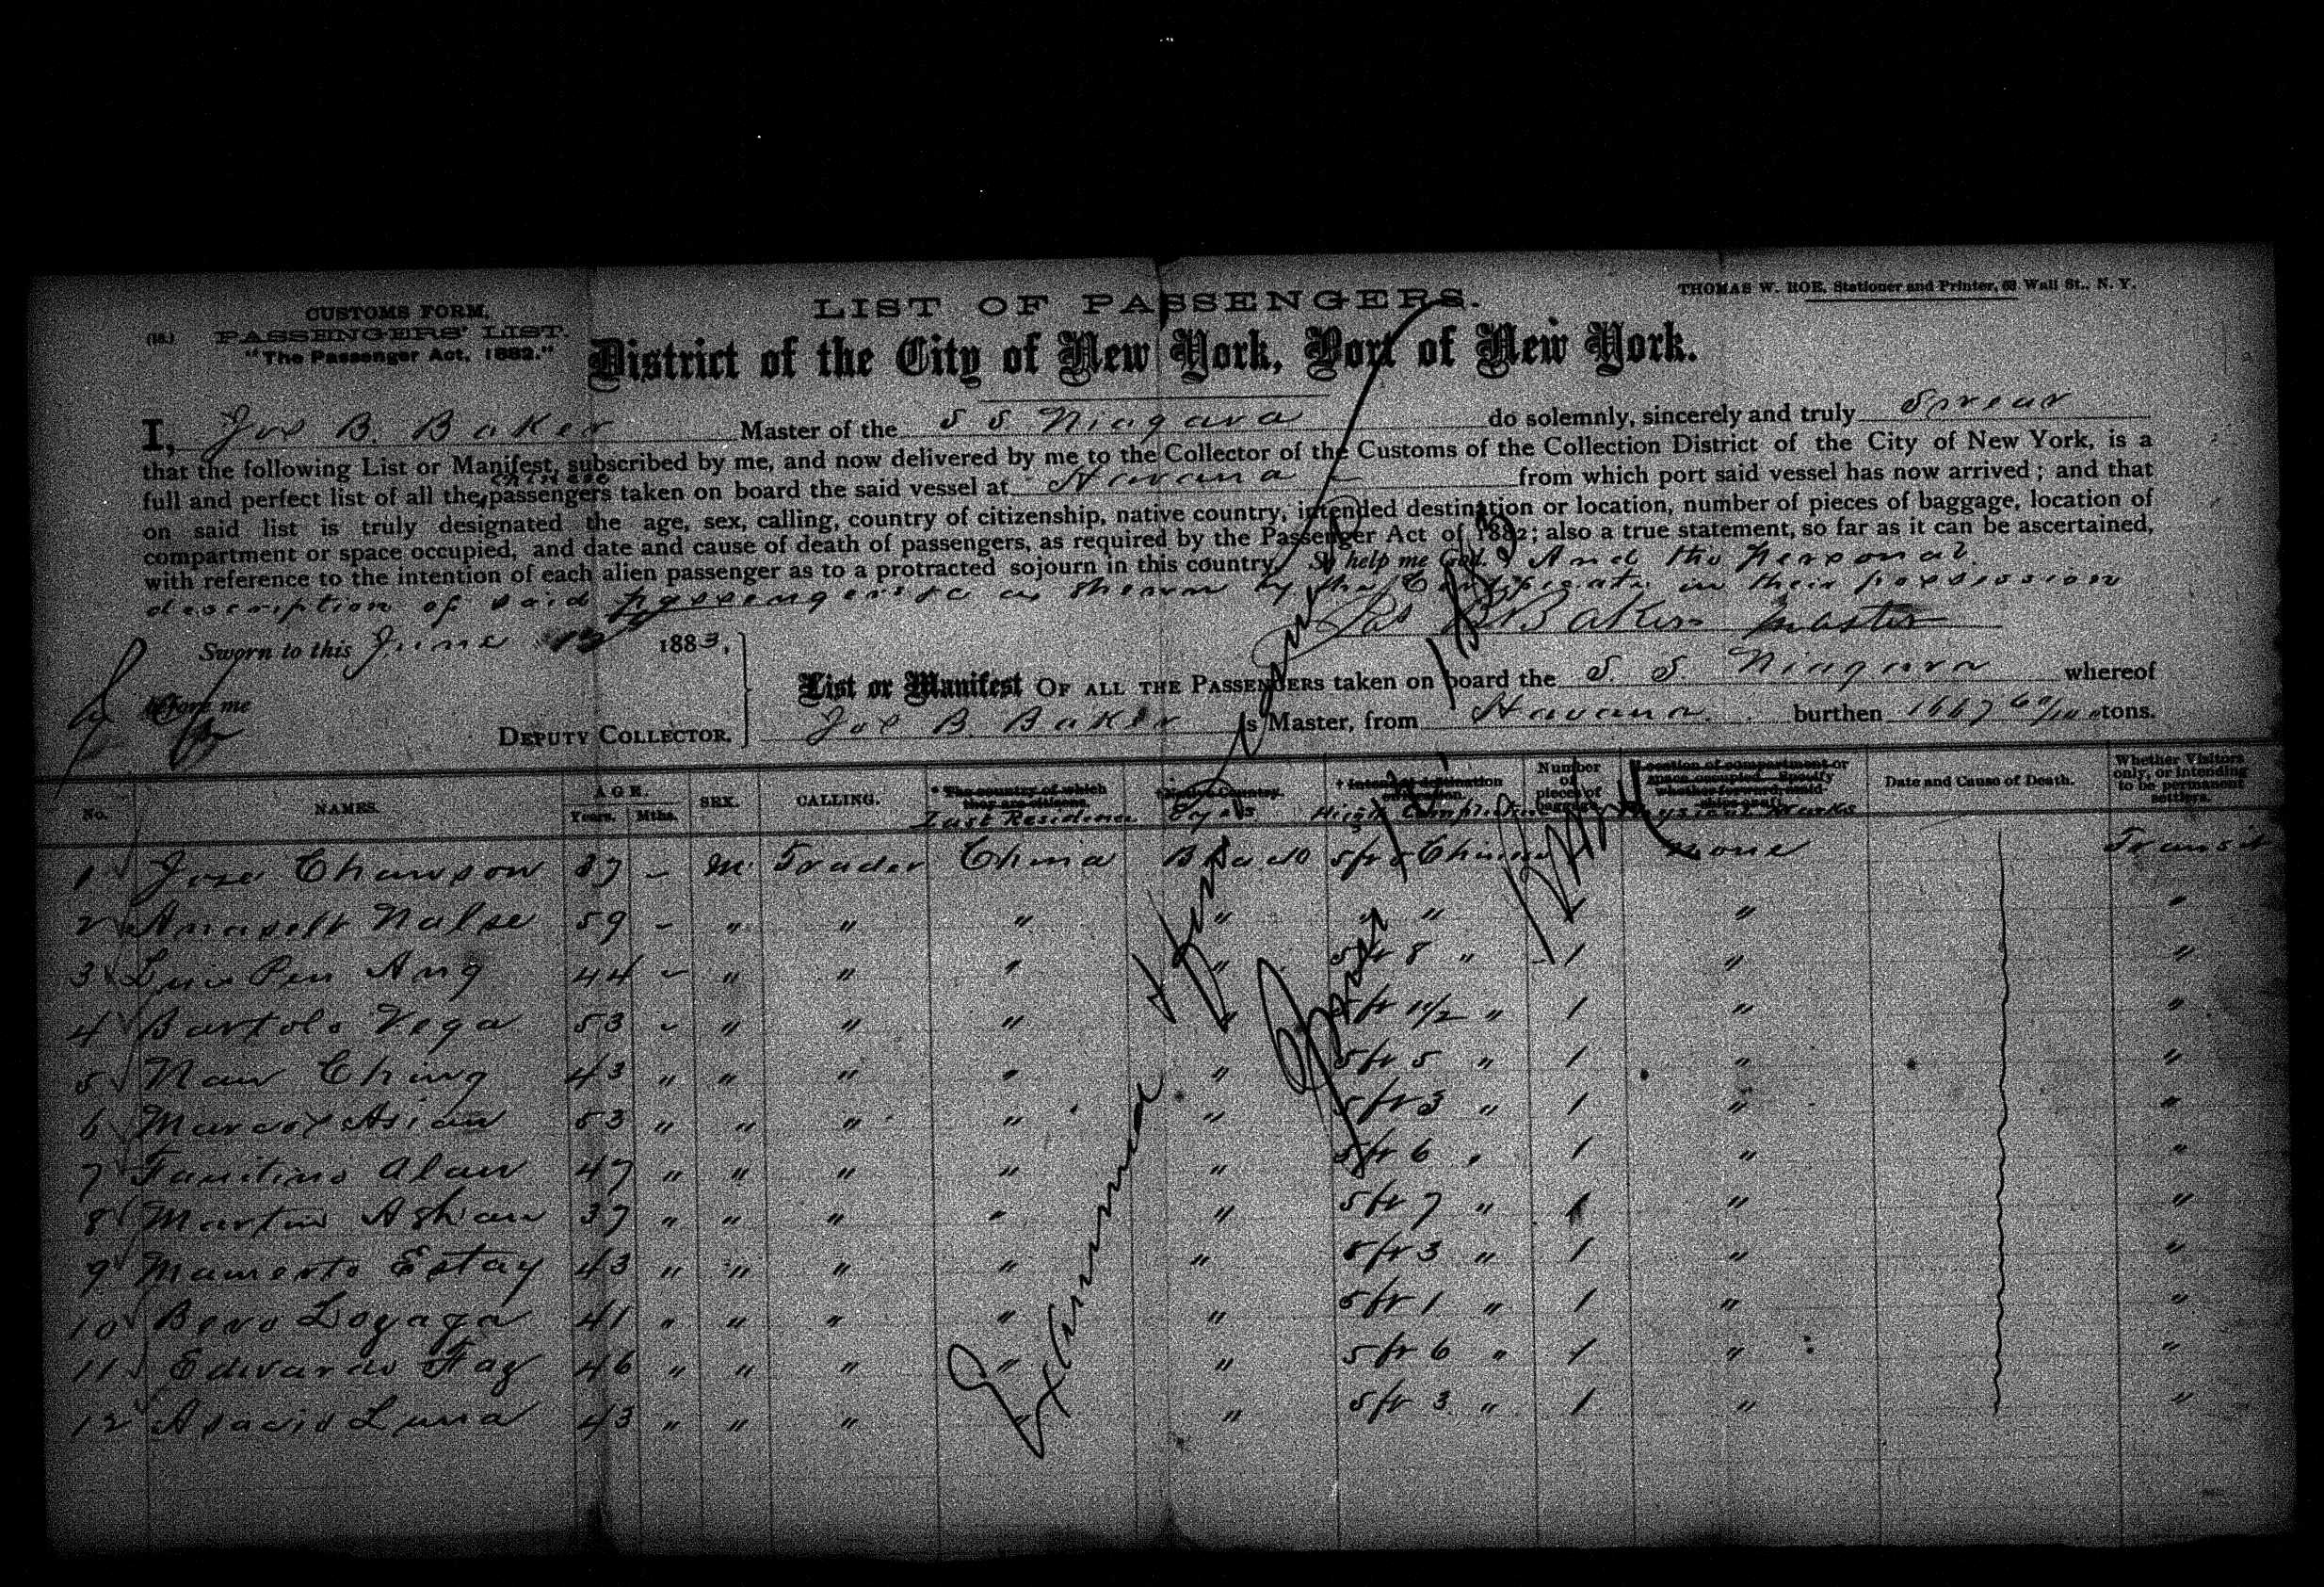 CUSTOMS FORM,
(18.) PASSENGERS' LIST.
"The Passenger Act, 1882."
LIST OF PASSENGERS.
THOMAS W. ROE, Stationer and Printer, Wall St., N. Y.
District of the City of New York, Port of New York.
I, Jos B. Baker Master of the S S Niagara do solemnly, sincerely and truly Swear
that the following List or Manifest, subscribed by me, and now delivered by me to the Collector of the Customs of the Collection District of the City of New York, is a
full and perfect list of all the chinese passengers taken on board the said vessel at Havana from which port said vessel has now arrived; and that
on said list is truly designated the age, sex, calling, country of citizenship, native country, intended destination or location, number of pieces of baggage, location of
compartment or space occupied, and date and cause of death of passengers, as required by the Passenger Act of 1882; also a true statement, so far as it can be ascertained,
with reference to the intention of each alien passenger as to a protracted sojourn in this country. So help me God. And the personal
description of said passengers as shown by the Certificate in their possession
Jas B Baker Master
Sworn to this June 1883,
before me
DEPUTY COLLECTOR.
List or Manifest OF ALL THE PASSENGERS taken on board the S. S. Niagara whereof
Jos B. Baker is Master, from Havana burthen 1667 tons.
No. NAMES. AGE. Years. Mths. SEX. CALLING. * The country of which they are citizens. Last Residence Native Country. Eyes † Intended destination or location. Hight Complection Number of pieces of baggage Location of compartment or space occupied. Physical Marks Date and Cause of Death. Whether Visitors only, or intending to be permanent settlers.
1 Jose Chawson 37 – M. Trader China 5 ft China none Transit
2 Nalse 59 – " " " " " " "
3 Luis Pen Ang 44 – " " " " 5 ft 8 " 1 " "
4 Bartolo Vega 53 – " " " " 5 ft 1½ " 1 " "
5 Naw Ching 43 " " " " " 5 ft 5 " 1 " "
6 Marcos Asian 53 " " " " " 5 ft 3 " 1 " "
7 Alaw 47 " " " " " 5 ft 6 " 1 " "
8 Martin Ashaw 37 " " " " " 5 ft 7 " 1 " "
9 Mamerto Estay 43 " " " " " 5 ft 3 " 1 " "
10 Loyaga 41 " " " " " 5 ft 1 " 1 " "
11 Edwardo Fay 46 " " " " " 5 ft 6 " 1 " "
12 Luna 43 " " " " " 5 ft 3 " 1 " "
Examined